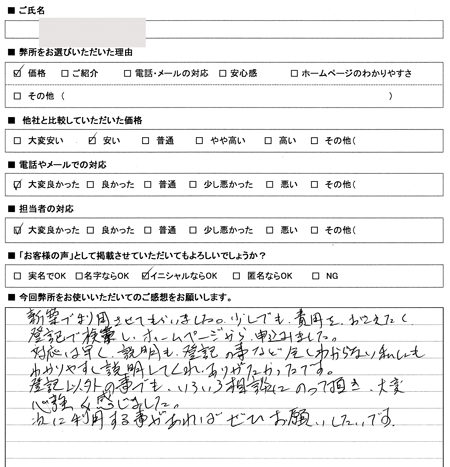 ■ ご氏名
■ 弊所をお選びいただいた理由
☑ 価格 □ ご紹介 □ 電話・メールの対応 □ 安心感 □ ホームページのわかりやすさ
□ その他 ( )
■ 他社と比較していただいた価格
□ 大変安い ☑ 安い □ 普通 □ やや高い □ 高い □ その他(
■ 電話やメールでの対応
☑ 大変良かった □ 良かった □ 普通 □ 少し悪かった □ 悪い □ その他(
■ 担当者の対応
☑ 大変良かった □ 良かった □ 普通 □ 少し悪かった □ 悪い □ その他(
■ 「お客様の声」として掲載させていただいてもよろしいでしょうか?
□ 実名でOK □ 名字ならOK ☑ イニシャルならOK □ 匿名ならOK □ NG
■ 今回弊所をお使いいただいてのご感想をお願いします。
新築で利用させてもらいました。少しでも費用をおさえたく
登記で検索し、ホームページから申込みました。
対応は早く、説明も登記の事など全くわからない私にも
わかりやすく説明してくれ、ありがたかったです。
登記以外の事でも、いろいろ相談にのって頂き、大変
心強く感じました。
次に利用する事があればぜひお願いしたいです。